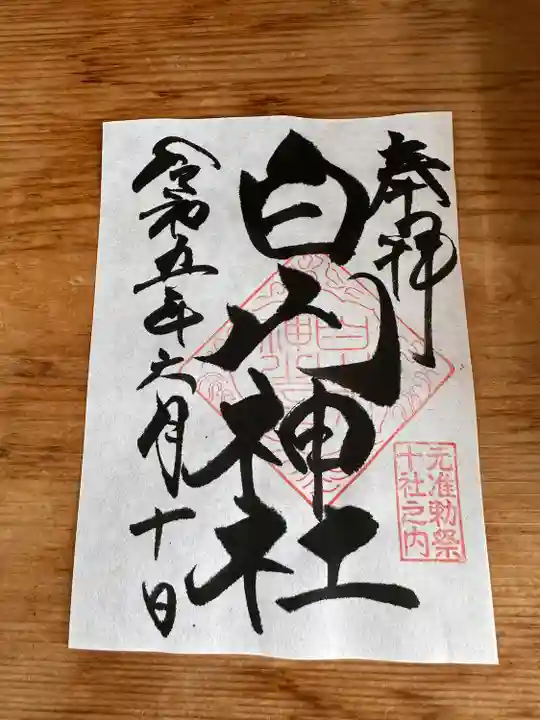 奉拝
元准勅祭
十社之内
白山神社
令和五年六月十日